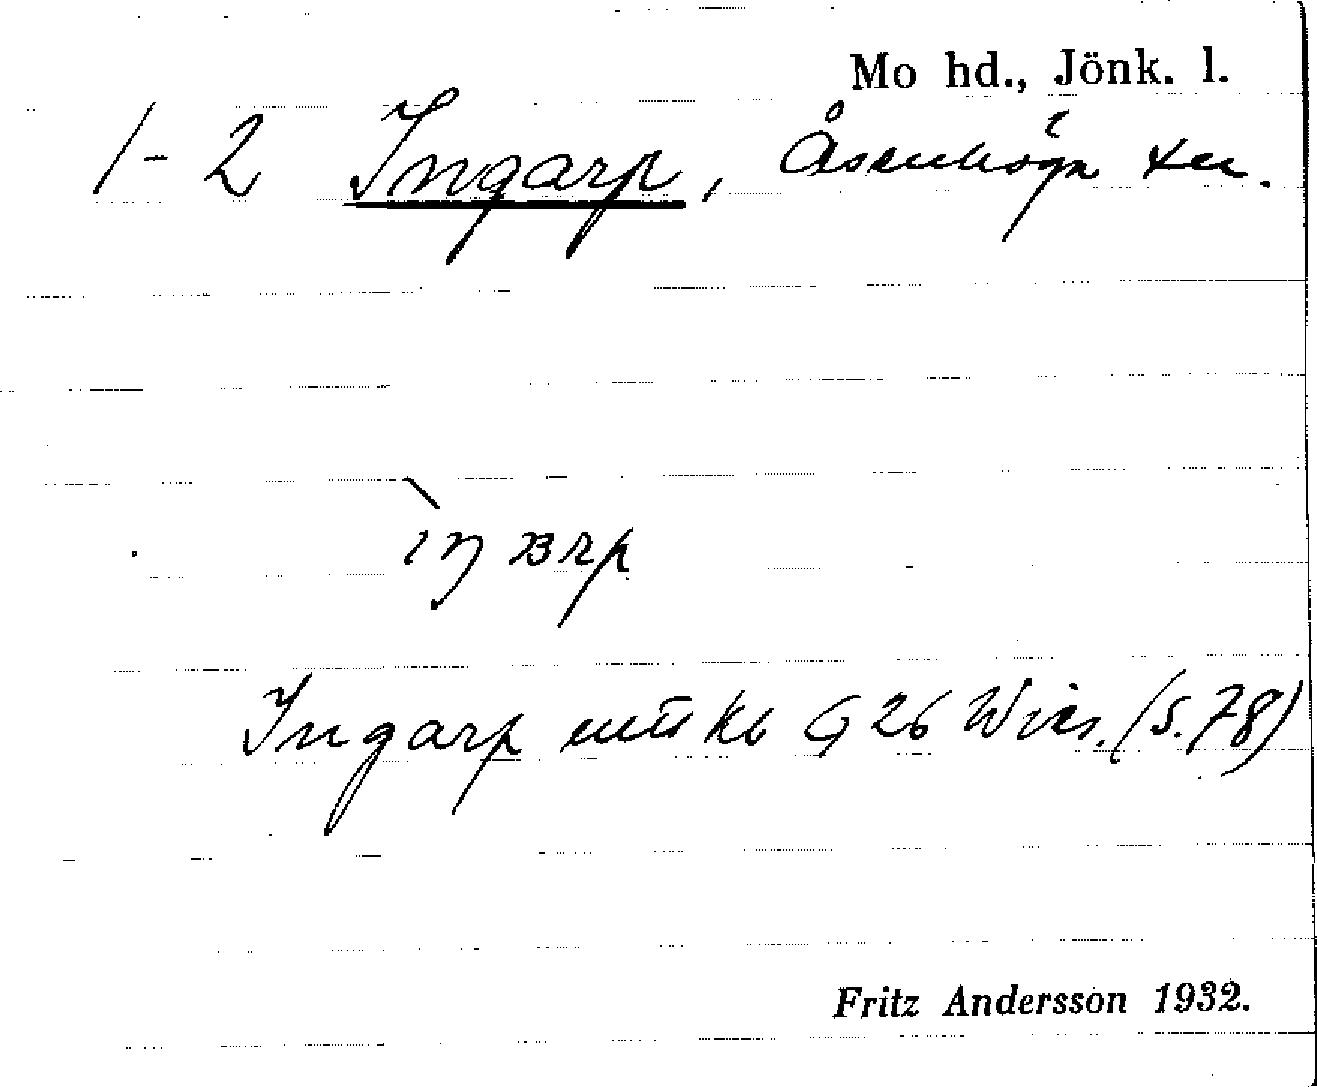 Mo hd., Jönk. l.
1-2 Ingarp, Åsenhöga sn.
Ingarp G 26 (s. 78)
Fritz Andersson 1932.